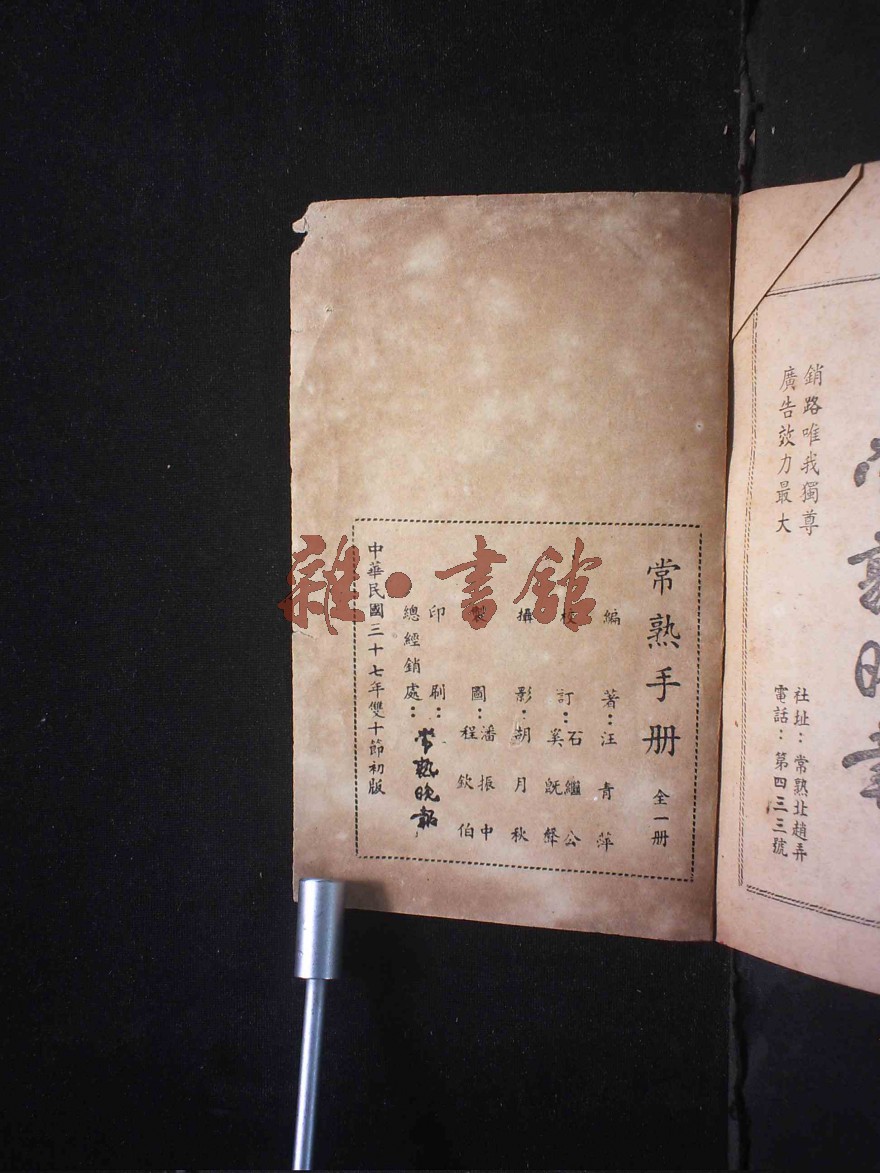 銷路唯我獨尊
廣告效力最大
社址：常熟北趙弄
電話：第四三三號
常熟手册 全一册
編著：汪青萍
校訂：石繼公
奚旣舜
攝影：胡月秋
製圖：潘振中
程欽伯
印刷：
總經銷處：
常熟晚報
中華民國三十七年雙十節初版
雜·書館